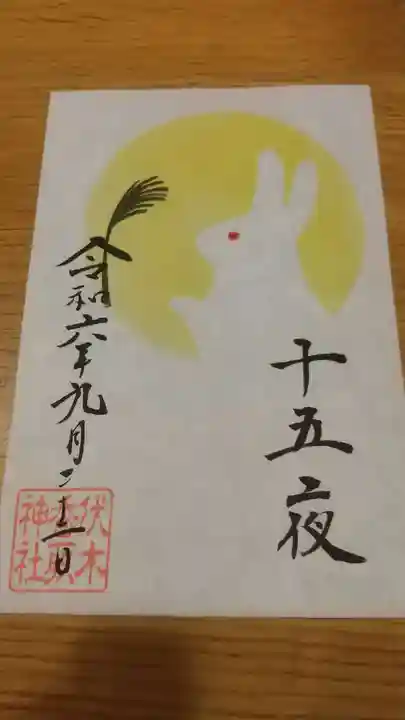 十五夜
令和六年九月二十一日
伏木
神社